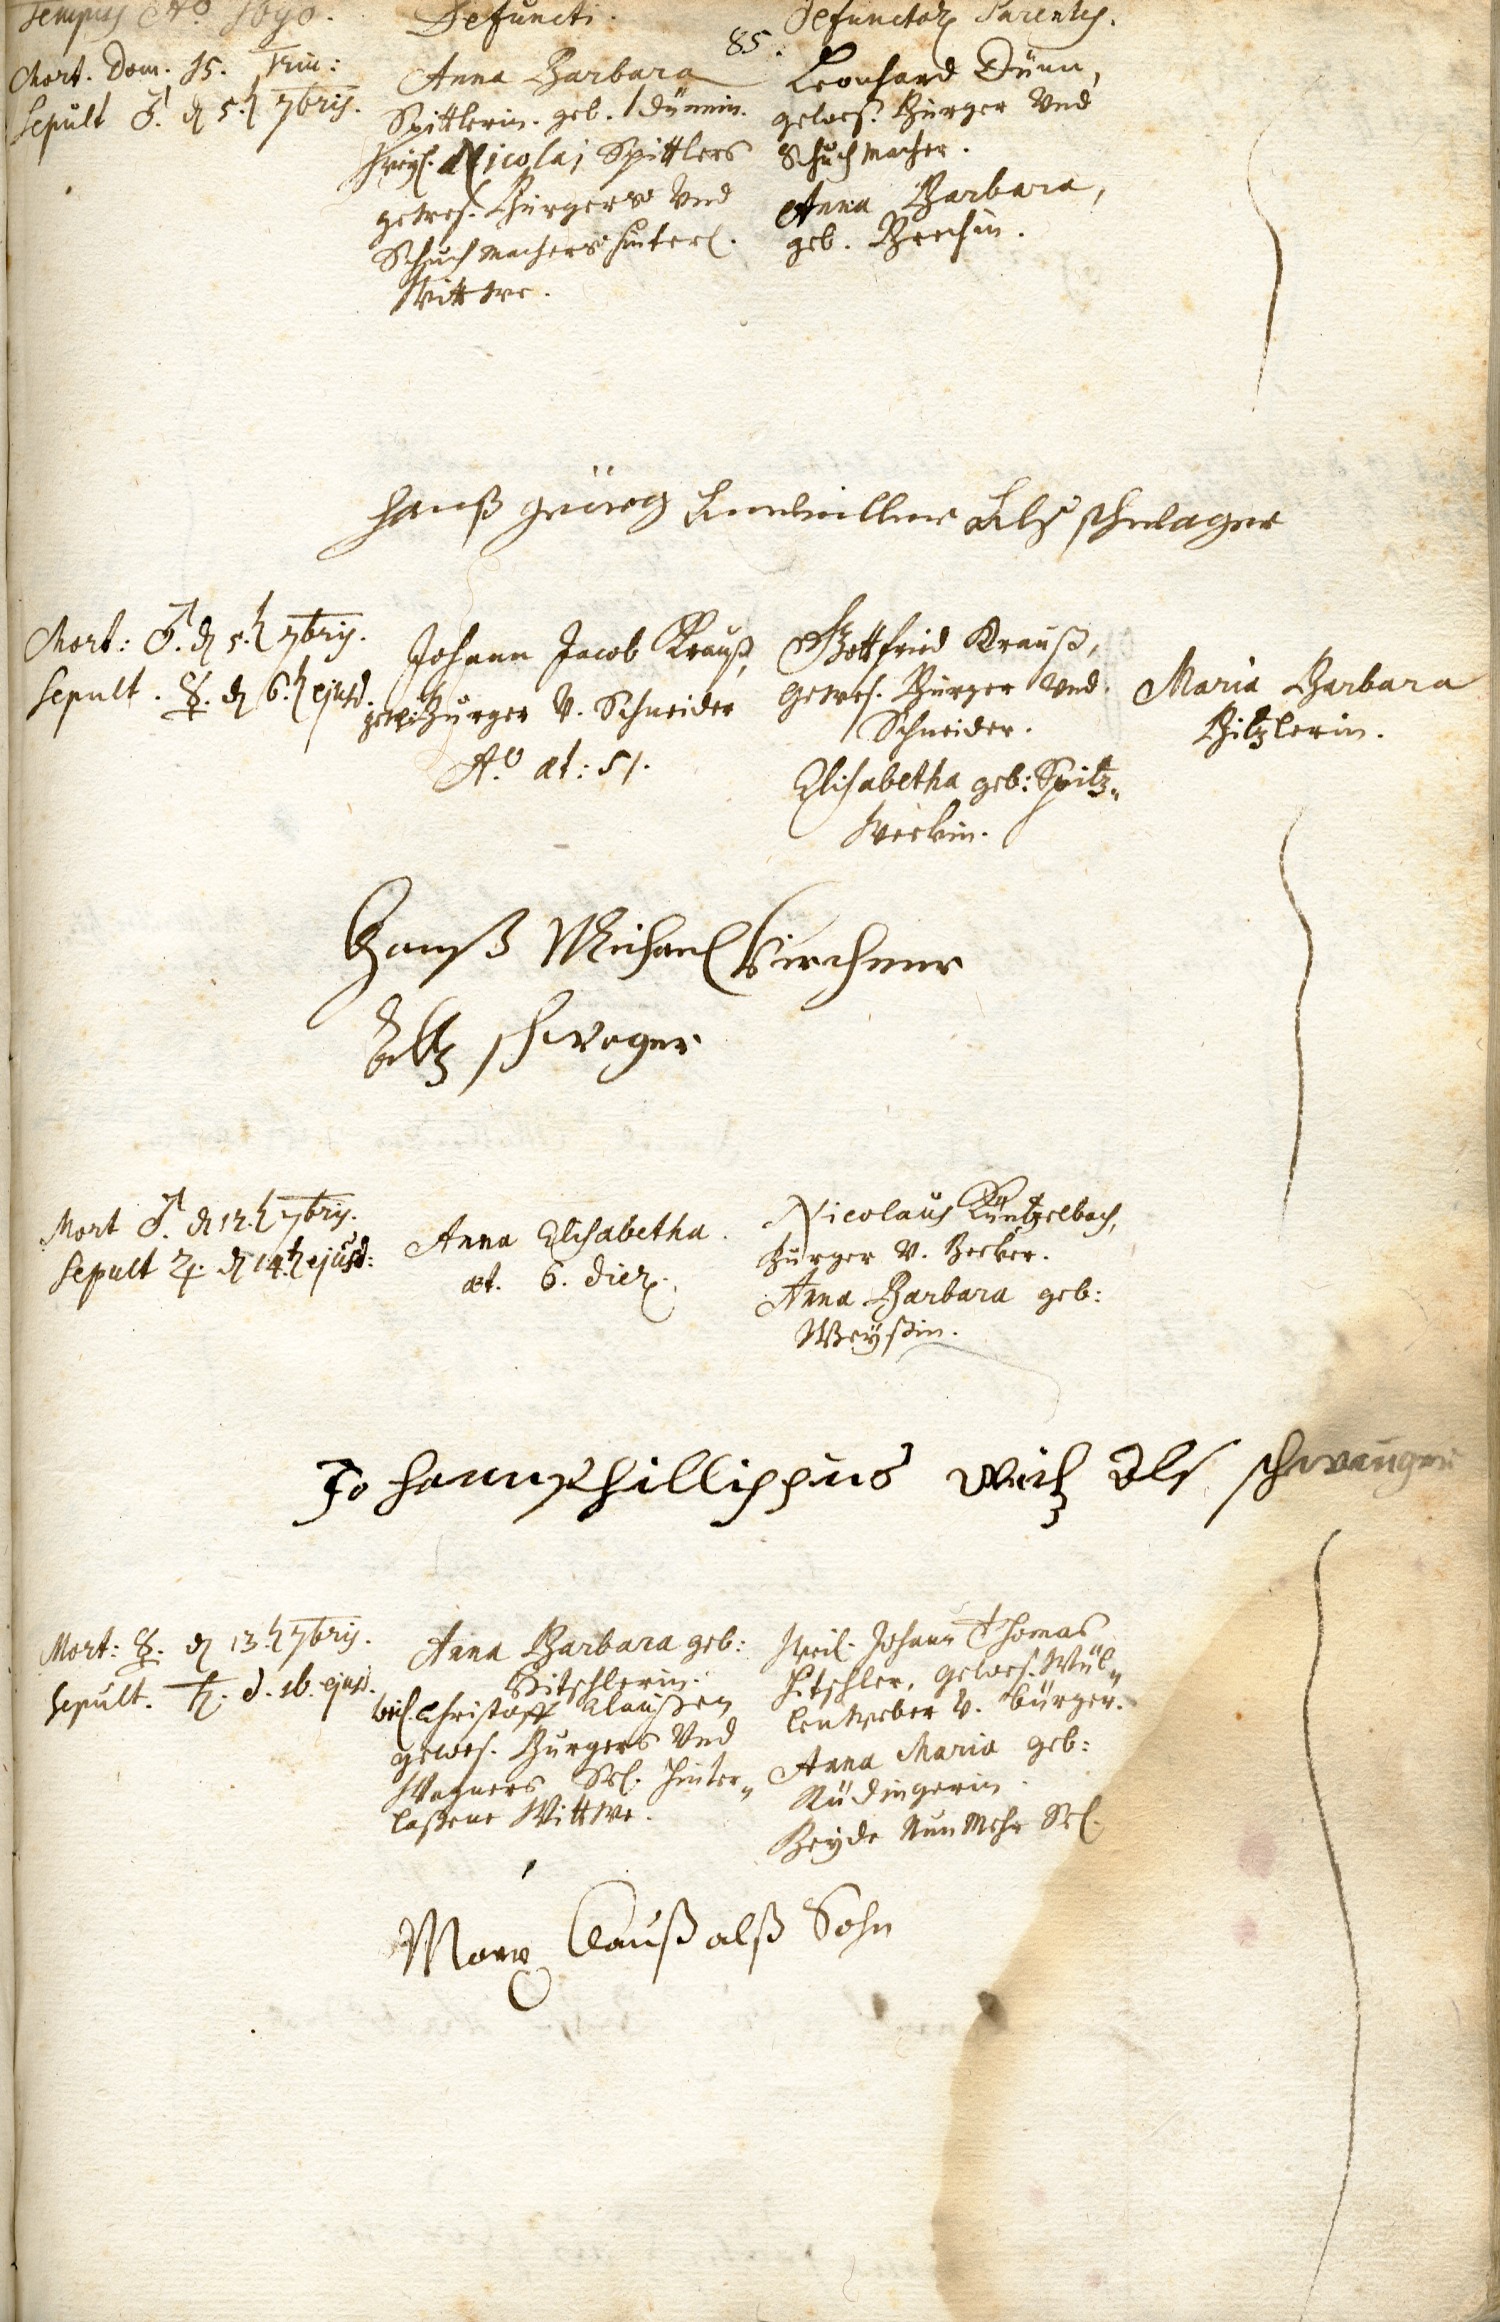 Tempus Aõ 1690.
Defuncti.
Defunctor Parentes.
85.
Mort. Dom. 15. Trin:
Sepult ♂. d 5. 7bris.
Anna Barbara
Spittlerin. geb. Dünnin.
Nicolai Spittlers
gewes. Burgers Vnd
Schuchmachers hinterl.
Wittwe.
Leonhard Dünn,
gewes. Burger Vnd
Schuchmacher.
Anna Barbara,
geb.
Hanß Als
Mort: ♂. d 5. 7bris.
Sepult. ☿. d 6. ejusd.
Johann Jacob Krauß,
gewes: Burger V. Schneider
Aõ æt: 51.
Gottfried Krauß,
Gewes. Burger Vnd
Schneider.
Elisabetha geb: Spitz-
weckin.
Maria Barbara
Bitzlerin.
Hanß Michael Kirchner
Altz schwager
Mort ♂. d 12. 7bris.
Sepult ♃. d 14. ejusd:
Anna Elisabetha.
æt. 6. dier.
Nicolaus Küntzelbach,
Burger V. Becker.
Anna Barbara geb:
Weyßin.
Johannphillippus Als
Mort: ☿. d 13. 7bris.
Sepult. ♄. d. 16. ejusd.
Anna Barbara geb:
Hitschlerin.
weil. Christoff Claußen
gewes. Burgers Vnd
Wagners Sel. Hinter-
laßene Wittwe.
Weil. Johann Thomas
Hitschler, gewes. Wül-
lenweber V. bürger.
Anna Maria geb:
Rüdingerin.
Beyde Nun Mehr Sel.
Marx Clauß alß Sohn